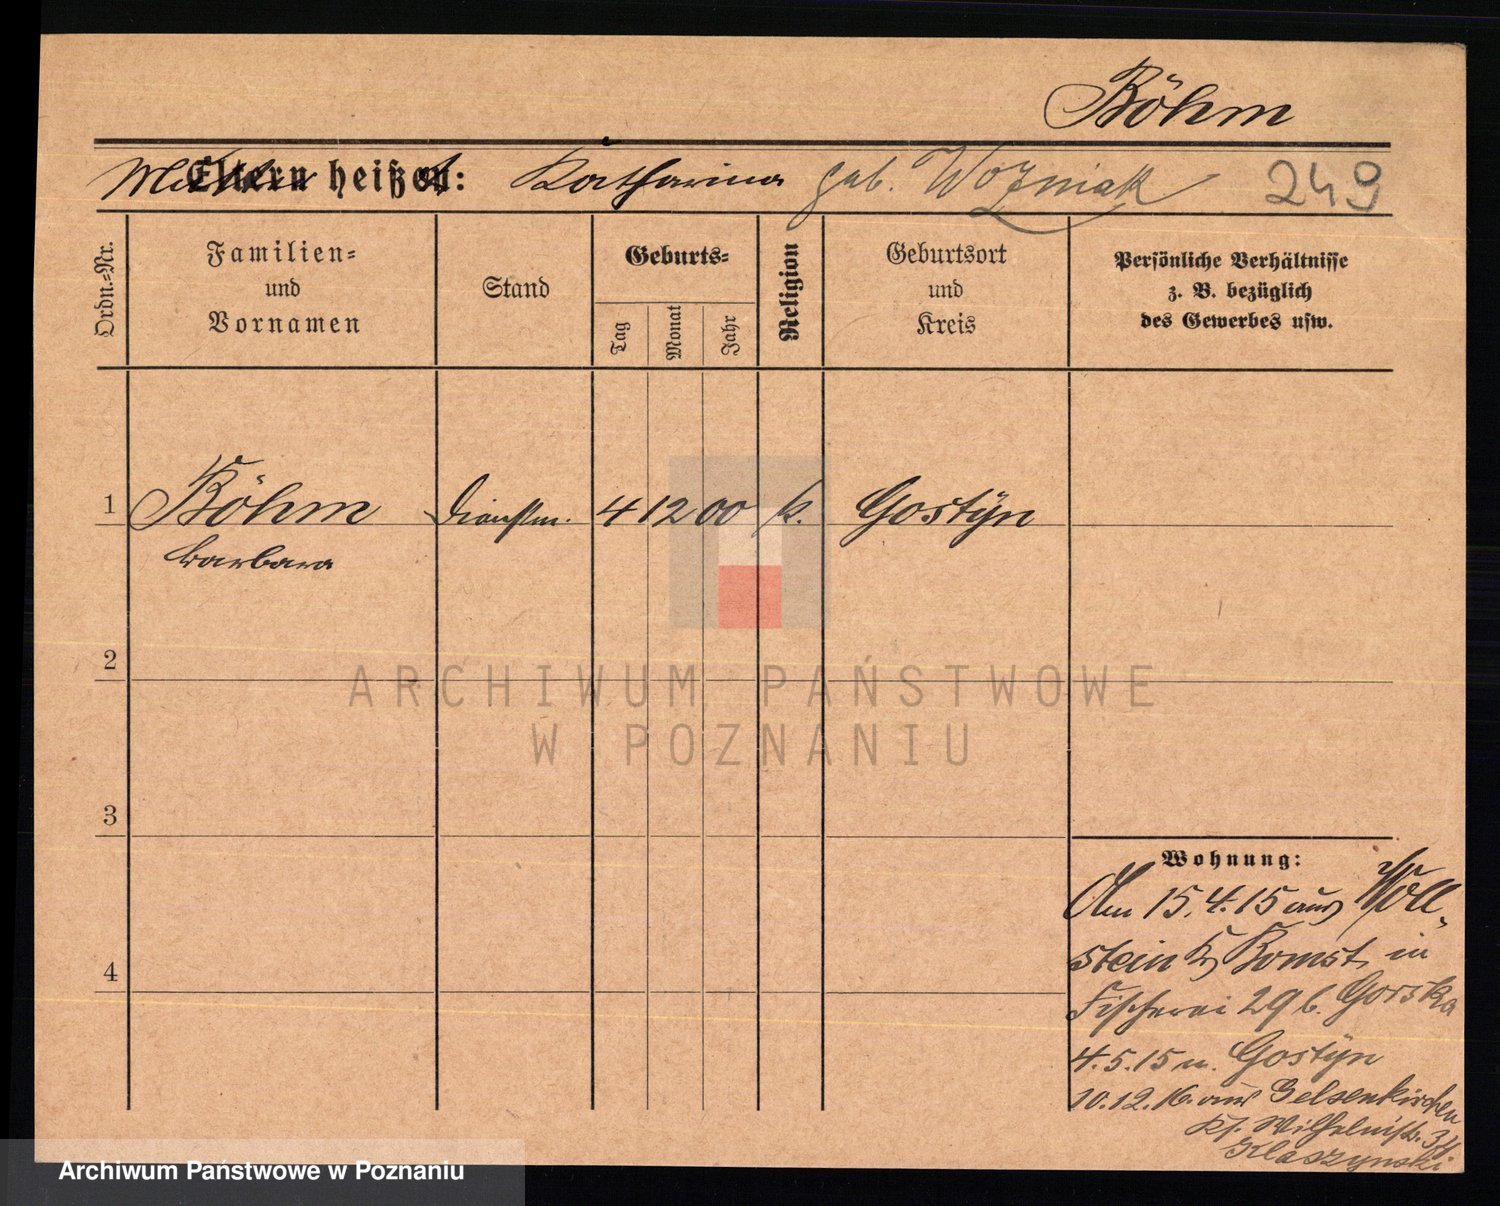 Böhm
Mutter heißt: Katharina geb. Wozniak 249
Eltern heißen:
Ordn.-Nr.
Familien-
und
Vornamen
Stand
Geburts-
Tag
Monat
Jahr
Religion
Geburtsort
und
Kreis
Persönliche Verhältnisse
z. B. bezüglich
des Gewerbes usw.
1 Böhm Dienstm. 4 12 00 k. Gostÿn
Barbara
2
3
4
Wohnung:
Am 15.4.15 aus Woll-
stein Kr Bomst, in
Fischerei 29 b. Gorska
4.5.15 n. Gostÿn
10.12.16. aus Gelsenkirchen
Wilhelmstr. 34
Klaszynski
ARCHIWUM PAŃSTWOWE
W POZNANIU
Archiwum Państwowe w Poznaniu